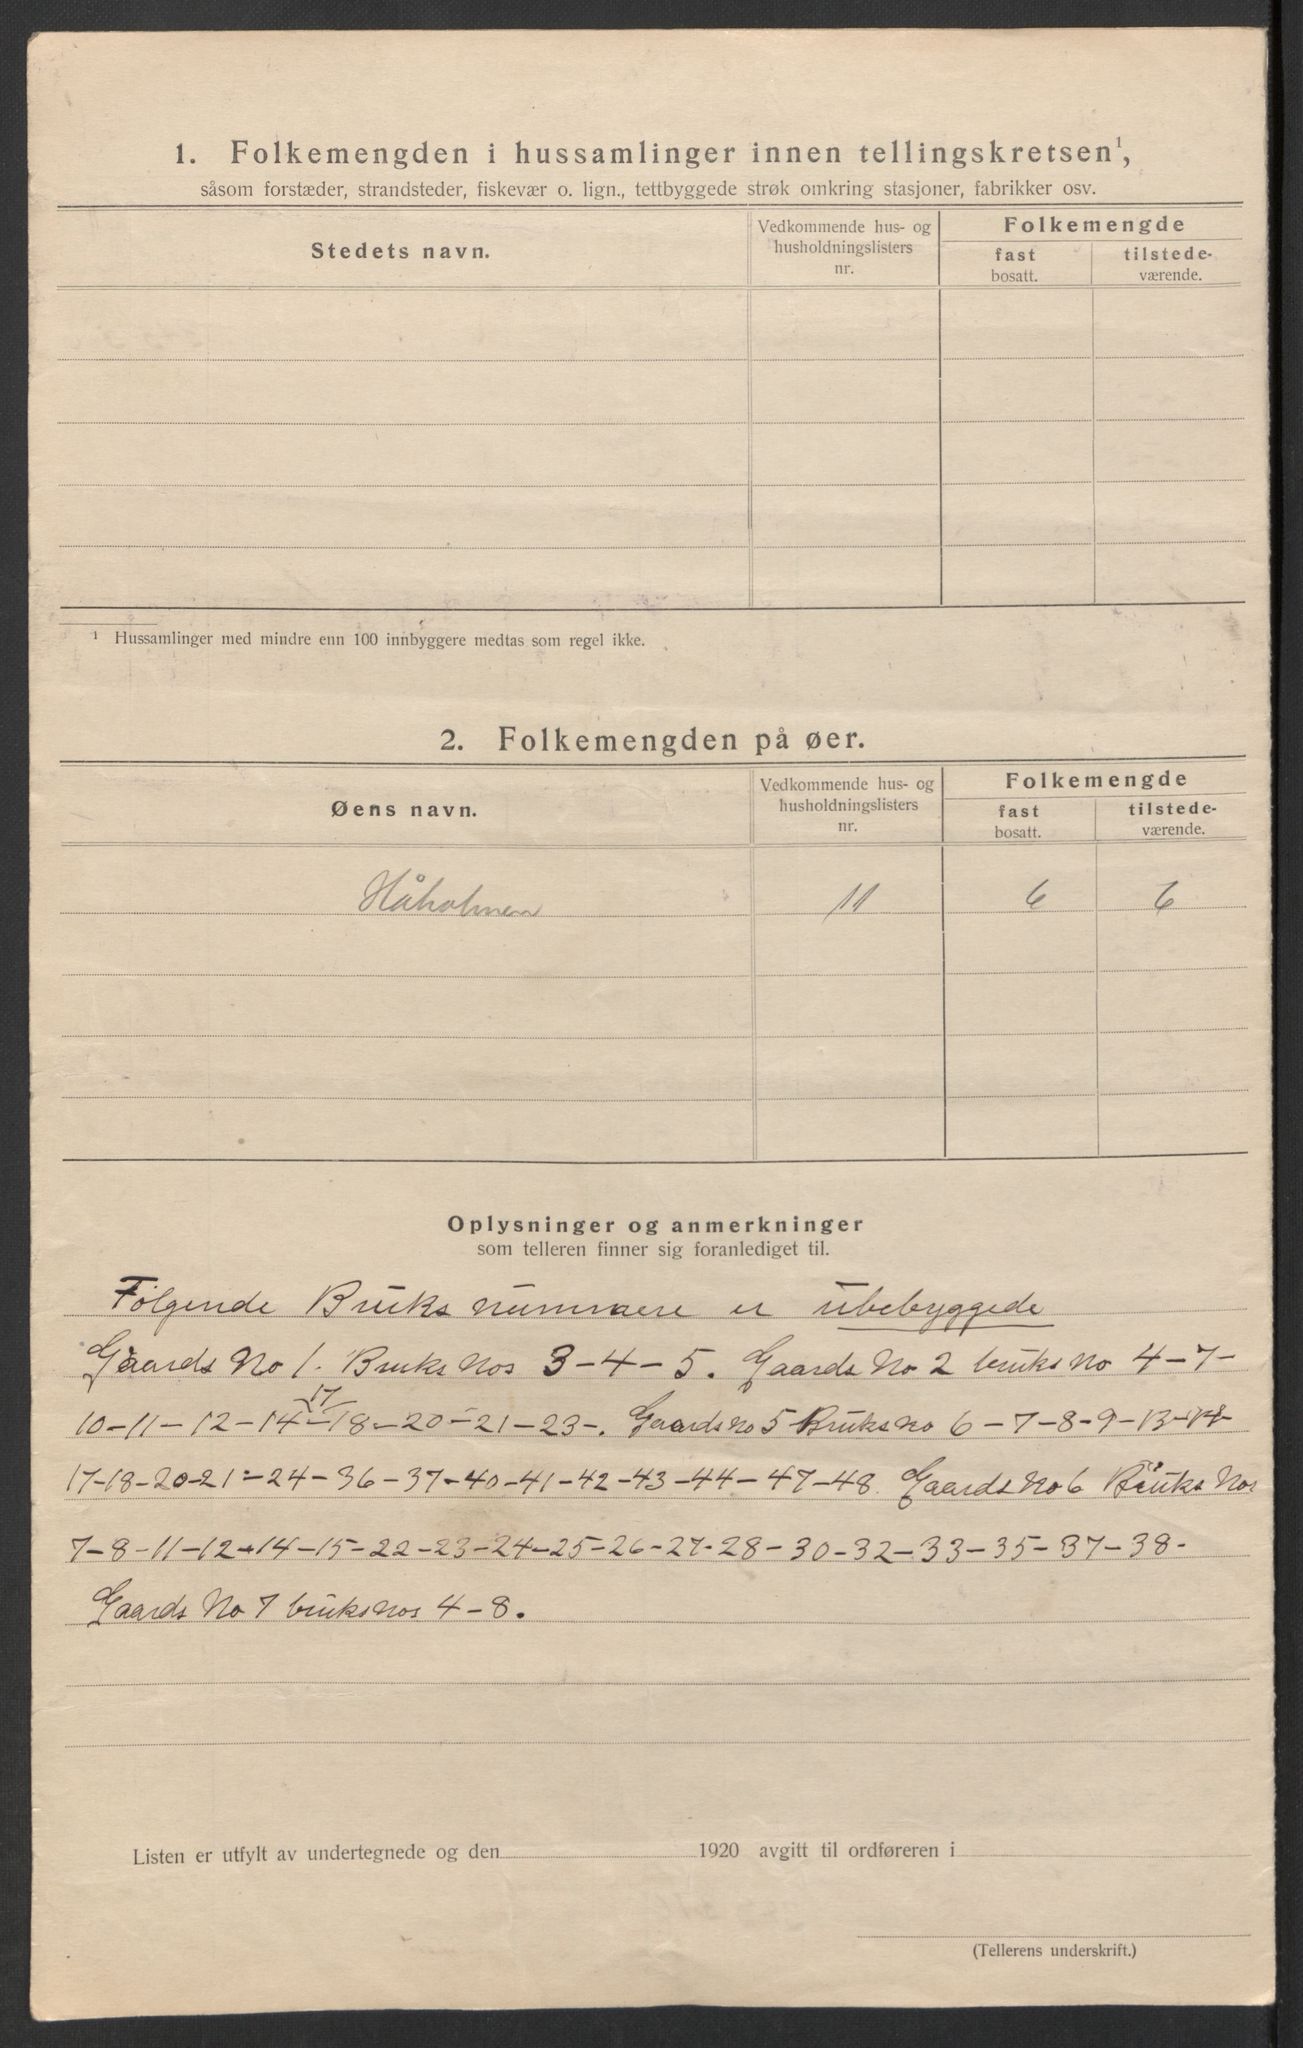 1. Folkemengden i hussamlinger innen tellingskretsen¹,
såsom forstæder, strandsteder, fiskevær o. lign., tettbyggede strøk omkring stasjoner, fabrikker osv.
Stedets navn.
Vedkommende hus- og husholdningslisters nr.
Folkemengde
fast bosatt.
tilstede-værende.
¹ Hussamlinger med mindre enn 100 innbyggere medtas som regel ikke.
2. Folkemengden på øer.
Øens navn.
Vedkommende hus- og husholdningslisters nr.
Folkemengde
fast bosatt.
tilstede-værende.
Håholmen 11 6 6
Oplysninger og anmerkninger
som telleren finner sig foranlediget til.
Følgende Bruks nummere er ubebyggede
Gaards No 1. Bruks Nos 3-4-5. Gaards No 2 bruks no 4-7-
10-11-12-14-17-18-20-21-23-. Gaards no 5 Bruks no 6-7-8-9-13-14-
17-18-20-21-24-36-37-40-41-42-43-44-47-48. Gaards No 6 Bruks Nos
7-8-11-12-14-15-22-23-24-25-26-27-28-30-32-33-35-37-38-
Gaards No 7 bruks nos 4-8.
Listen er utfylt av undertegnede og den 1920 avgitt til ordføreren i
(Tellerens underskrift.)